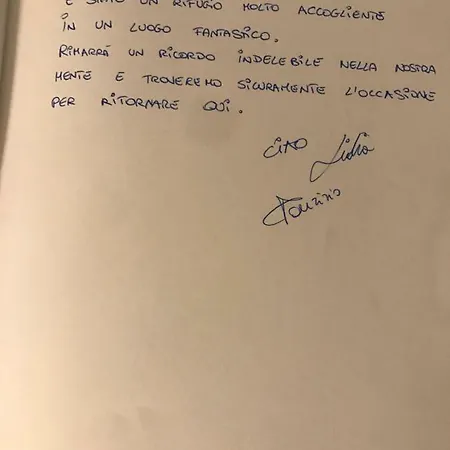 È STATO UN RIFUGIO MOLTO ACCOGLIENTE
IN UN LUOGO FANTASTICO.
RIMARRÁ UN RICORDO INDELEBILE NELLA NOSTRA
MENTE E TROVEREMO SICURAMENTE L'OCCASIONE
PER RITORNARE QUI.
CIAO Lidia
Maurizio